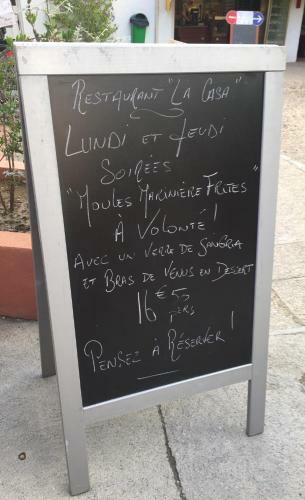 Restaurant "La Casa"
Lundi et Jeudi
Soirées
"Moules Marinière Frites"
À Volonté !
Avec un verre de Sangria
et Bras de Venus en Dessert
16€50
pers
Pensez à Réserver !